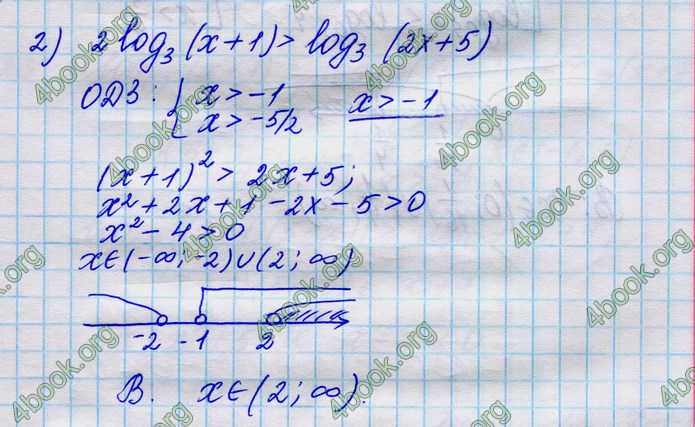 2) 2 log₃ (x+1) > log₃ (2x+5)
ОДЗ: { x > -1    x > -1
x > -5/2
(x+1)² > 2x+5;
x² + 2x + 1 - 2x - 5 > 0
x² - 4 > 0
x ∈ (-∞; -2) ∪ (2; ∞)
-2 -1 2
В. x ∈ (2; ∞).
4book.org
4book.org
4book.org
4book.org
4book.org
4book.org
4book.org
4book.org
4book.org
4book.org
4book.org